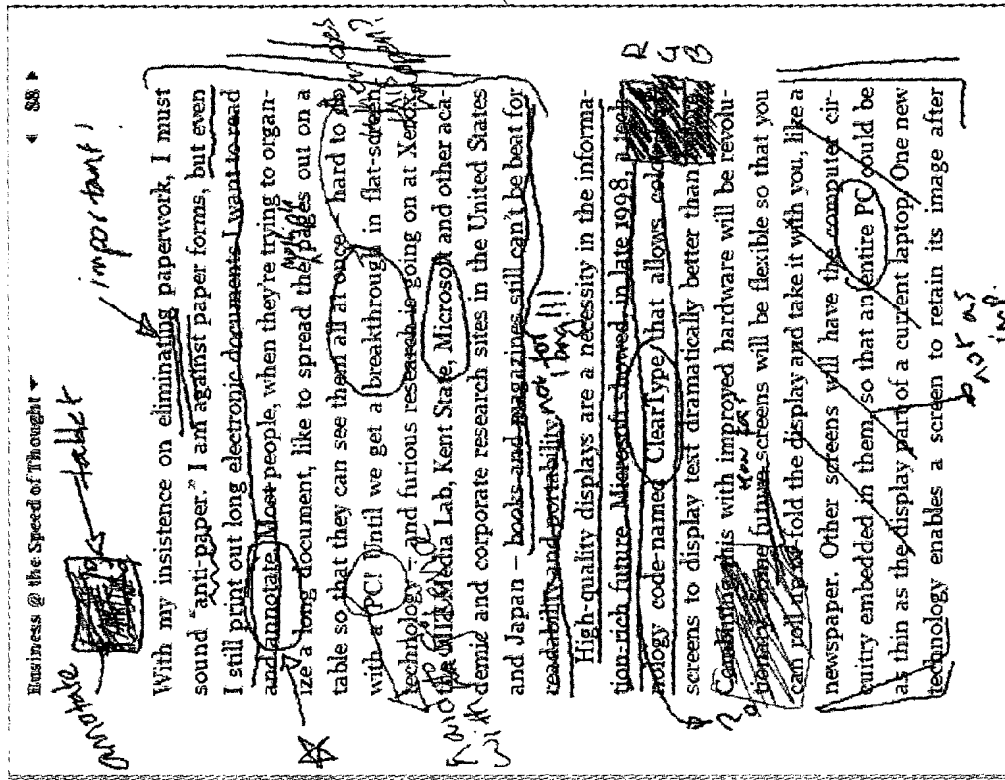 Business @ the Speed of Thought
88
annotate
tablet
important!
With my insistence on eliminating paperwork, I must
sound "anti-paper." I am against paper forms, but even
I still print out long electronic documents I want to read
and annotate. Most people, when they're trying to organ-
ize a long document, like to spread the pages out on a
table so that they can see them all at once – hard to do
with a PC! Until we get a breakthrough in flat-screen
technology – and furious research is going on at Xerox,
the MIT Media Lab, Kent State, Microsoft and other aca-
demic and corporate research sites in the United States
and Japan – books and magazines still can't be beat for
readability and portability.
not for
long!!!
High-quality displays are a necessity in the informa-
tion-rich future. Microsoft showed, in late 1998, a tech-
nology code-named ClearType that allows
R
G
B
screens to display text dramatically better than
Combining this with improved hardware will be revolu-
tionary. Some future screens will be flexible so that you
can roll up or fold the display and take it with you, like a
newspaper. Other screens will have the computer cir-
cuitry embedded in them, so that an entire PC could be
as thin as the display part of a current laptop. One new
technology enables a screen to retain its image after
not as
imp.